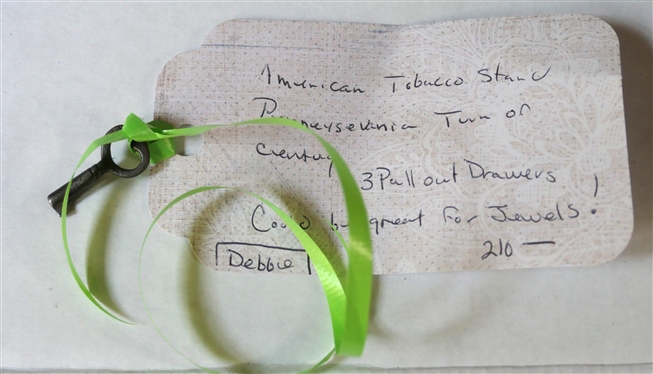 American Tobacco Stand
Pennseysevania Turn of
Century
3 Pull out Drawers
Could be great for Jewels!
Debbie
210 —